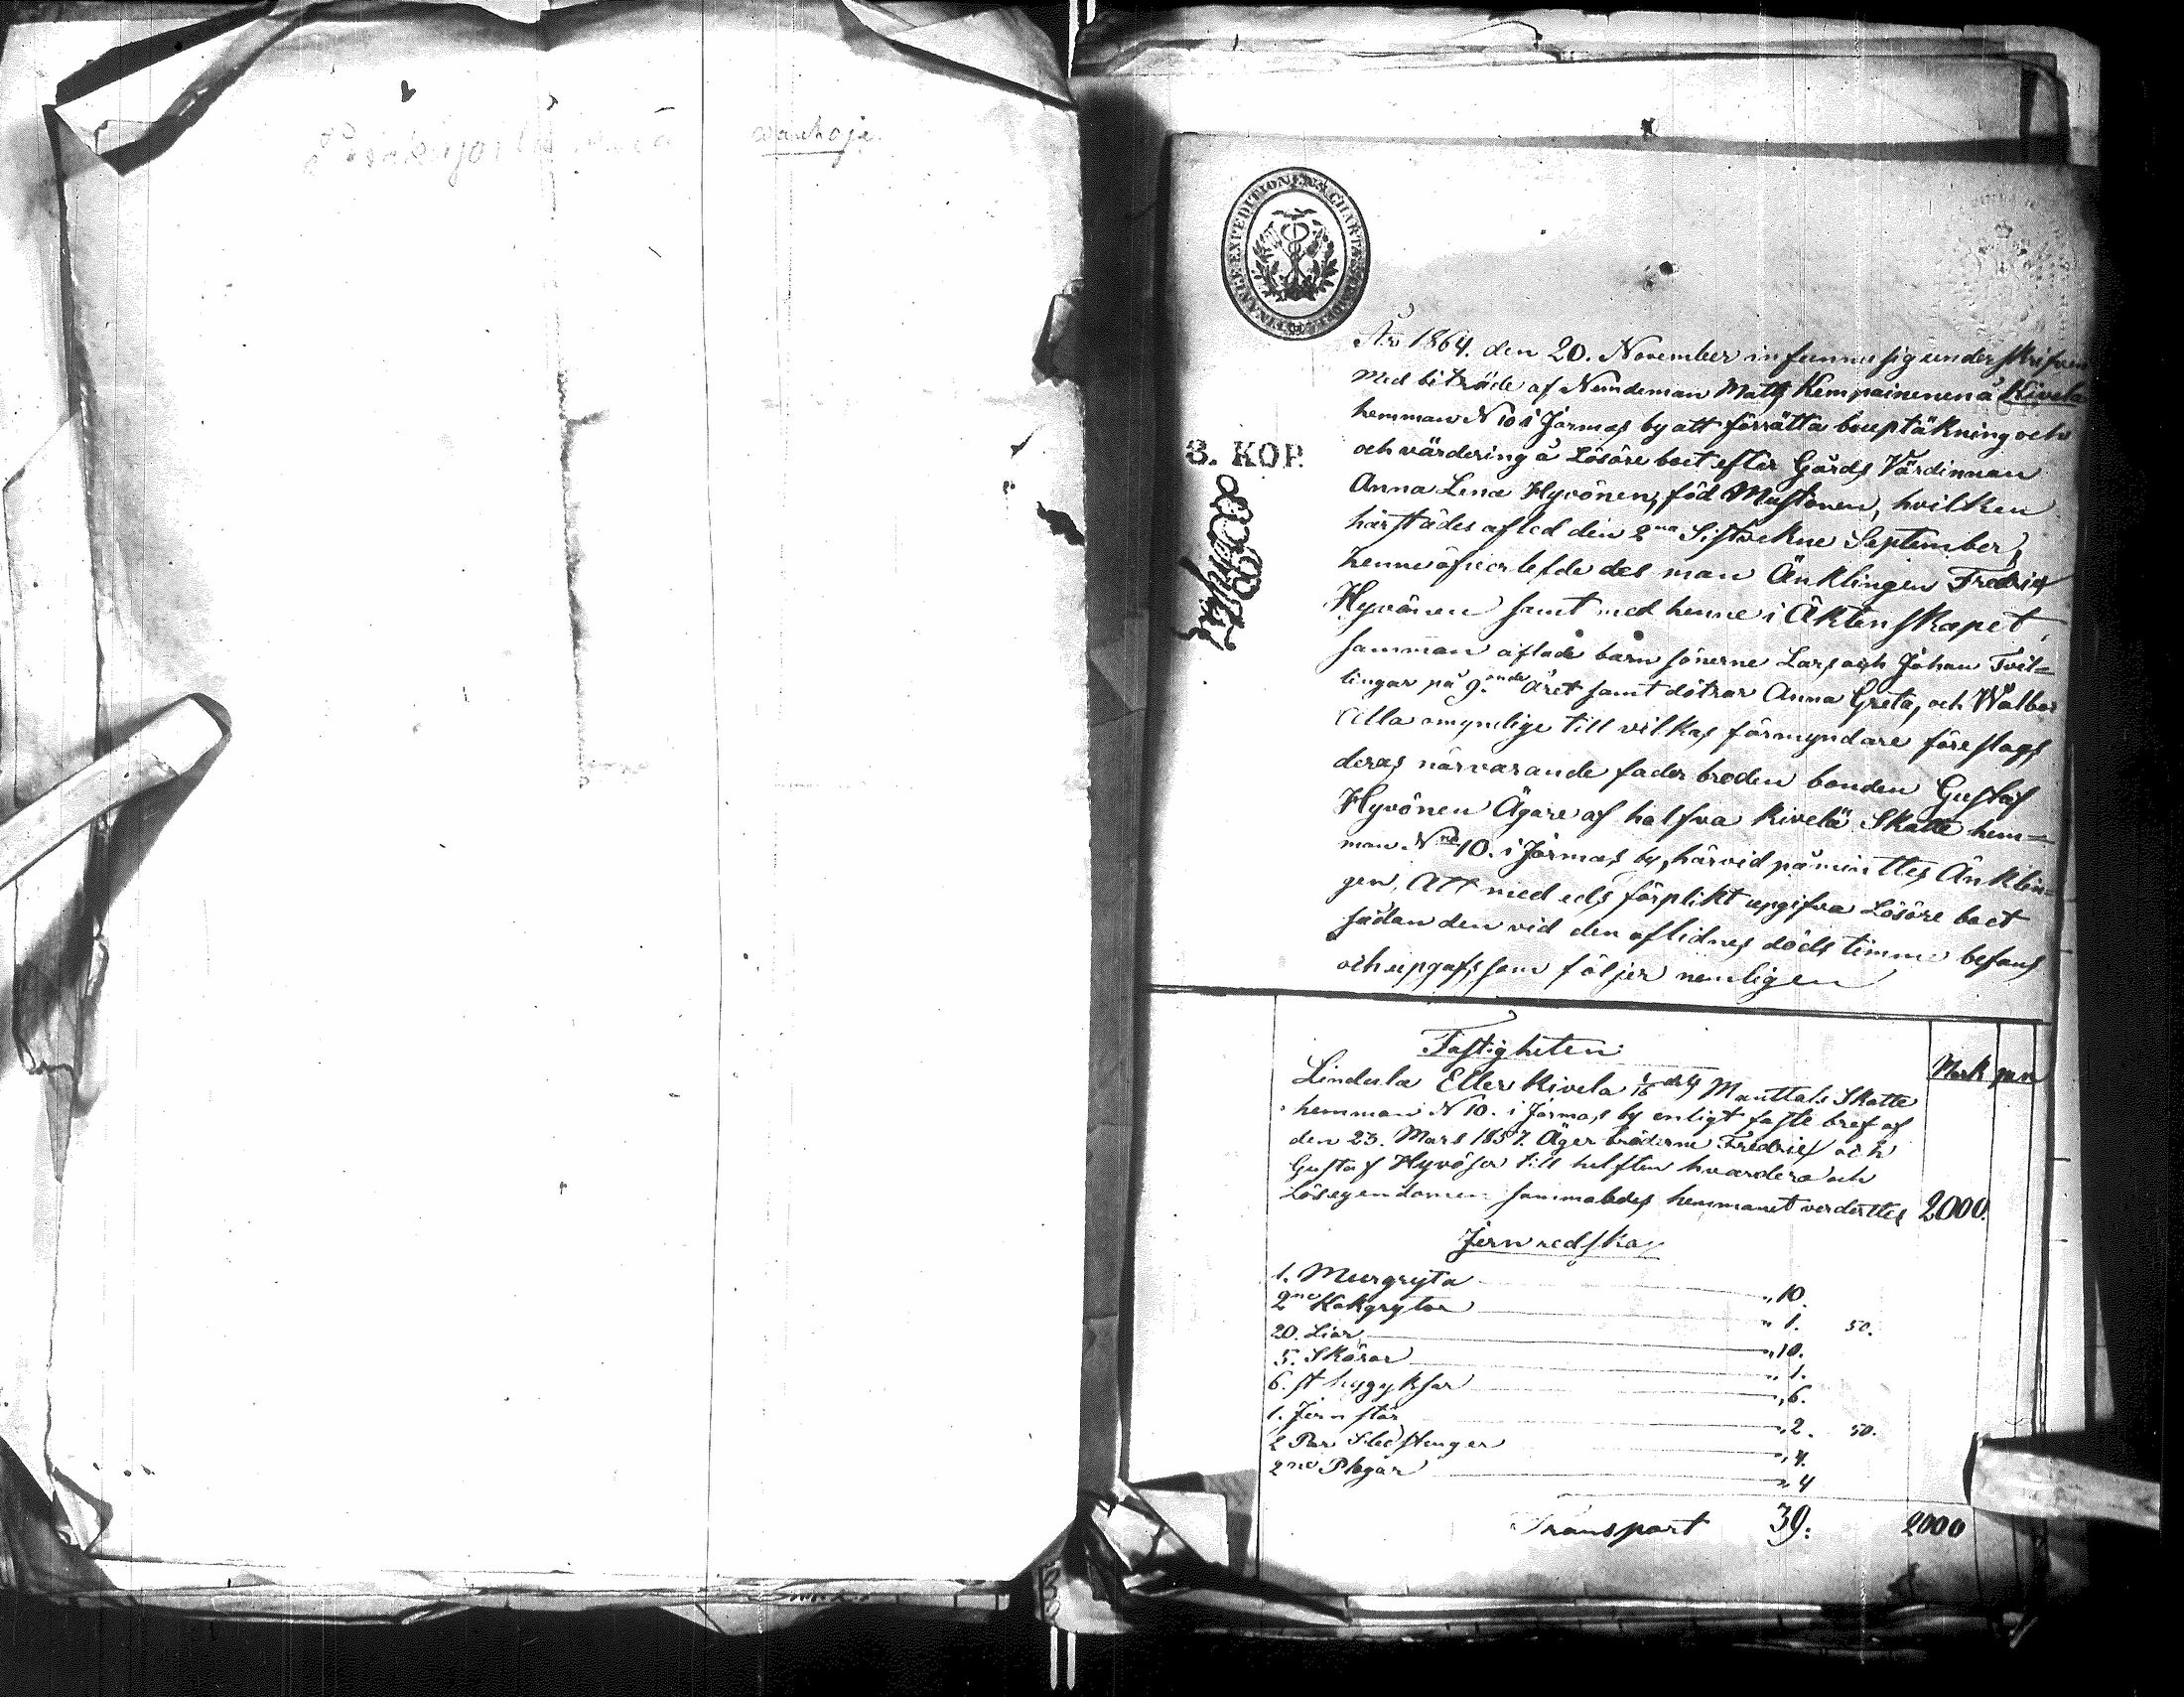 wanhoja
3. KOP.
År 1864. den 20. November infunnu sig underskrifven
med biträde af Nemdeman Matts Kempainenen å Kivela
hemman N 10 i Jormas by att förrätta bouptäkning och
och värdering å Lösöre boet efter Gårds Värdinnan
Anna Lena Hyvönen, föd Mustonen, hvilken
härstädes afled den 2na Sistvekne September,
henne öfverlefde des man Änklingen Fredrix
Hyvönen samt med henne i Äktenskapet
samman aflade barn sönerne Lars och Johan Tvil=
lingar på 9:onde Året samt dötrar Anna Greta, och Walbor
Alla omyndige till vilkas förmyndare föreslogs
deras närvarande fader broden bonden Gustaf
Hyvönen Ägare af halfva Kivelä Skatte hem=
man Nno 10. i Jormas by, härvid påminttes Änklin=
gen, Att med eds förplikt upgifva Lösöre boet
sådan den vid den aflidnes döds timme befans
och upgafs som följer nemligen
Fastigheten
Mark pen
Lindula Eller Kivela 1/16 dels Manttals Skatte
hemman N 10. i Jormas by enligt faste bref af
den 23. Mars 1857. Äger bröderne Fredrix och
Gustaf Hyvöser till helften hvardera och
Lösegendomen sammaledes hemmanet verderttes 2000.
Jern redskap
1. Murgryta „ 10.
2ne Kokgrytor „ 1. 50.
20. Liar „ 10.
5. Skäror „ 1.
6. st hygyksar „ 6.
1. Jern stör „ 2. 50.
2 Par Sledstenger „ 4.
2ne Plogar „ 4
Transport 39: 2000